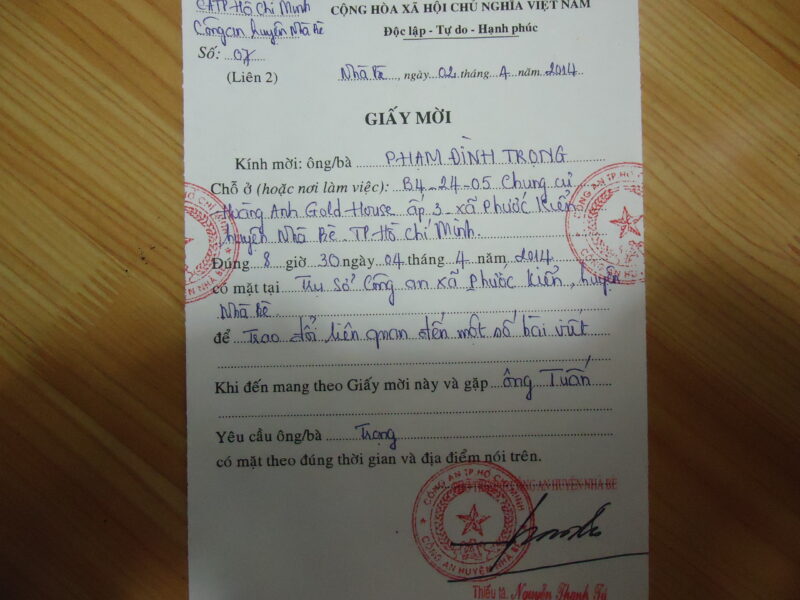 CATP Hồ Chí Minh
CỘNG HÒA XÃ HỘI CHỦ NGHĨA VIỆT NAM
Công an huyện Nhà Bè
Độc lập - Tự do - Hạnh phúc
Số: 07
(Liên 2)
Nhà Bè, ngày 02 tháng 4 năm 2014
GIẤY MỜI
Kính mời: ông/bà PHẠM ĐÌNH TRỌNG
Chỗ ở (hoặc nơi làm việc): B4-24-05 Chung cư
Hoàng Anh Gold House ấp 3 xã Phước Kiển
huyện Nhà Bè. TP Hồ Chí Minh.
Đúng 8 giờ 30 ngày 04 tháng 4 năm 2014
có mặt tại Trụ sở Công an xã Phước Kiển, huyện
Nhà Bè
để Trao đổi liên quan đến một số bài viết
Khi đến mang theo Giấy mời này và gặp ông Tuấn
Yêu cầu ông/bà Trọng
có mặt theo đúng thời gian và địa điểm nói trên.
TRƯỞNG CÔNG AN HUYỆN NHÀ BÈ
CÔNG AN TP HỒ CHÍ MINH
CÔNG AN HUYỆN NHÀ BÈ
Thiếu tá. Nguyễn Thanh